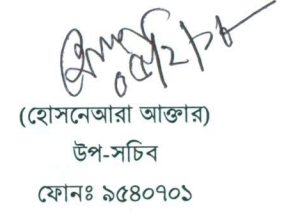 ০৫/২/১৮
(হোসনেআরা আক্তার)
উপ-সচিব
ফোনঃ ৯৫৪০৭০১